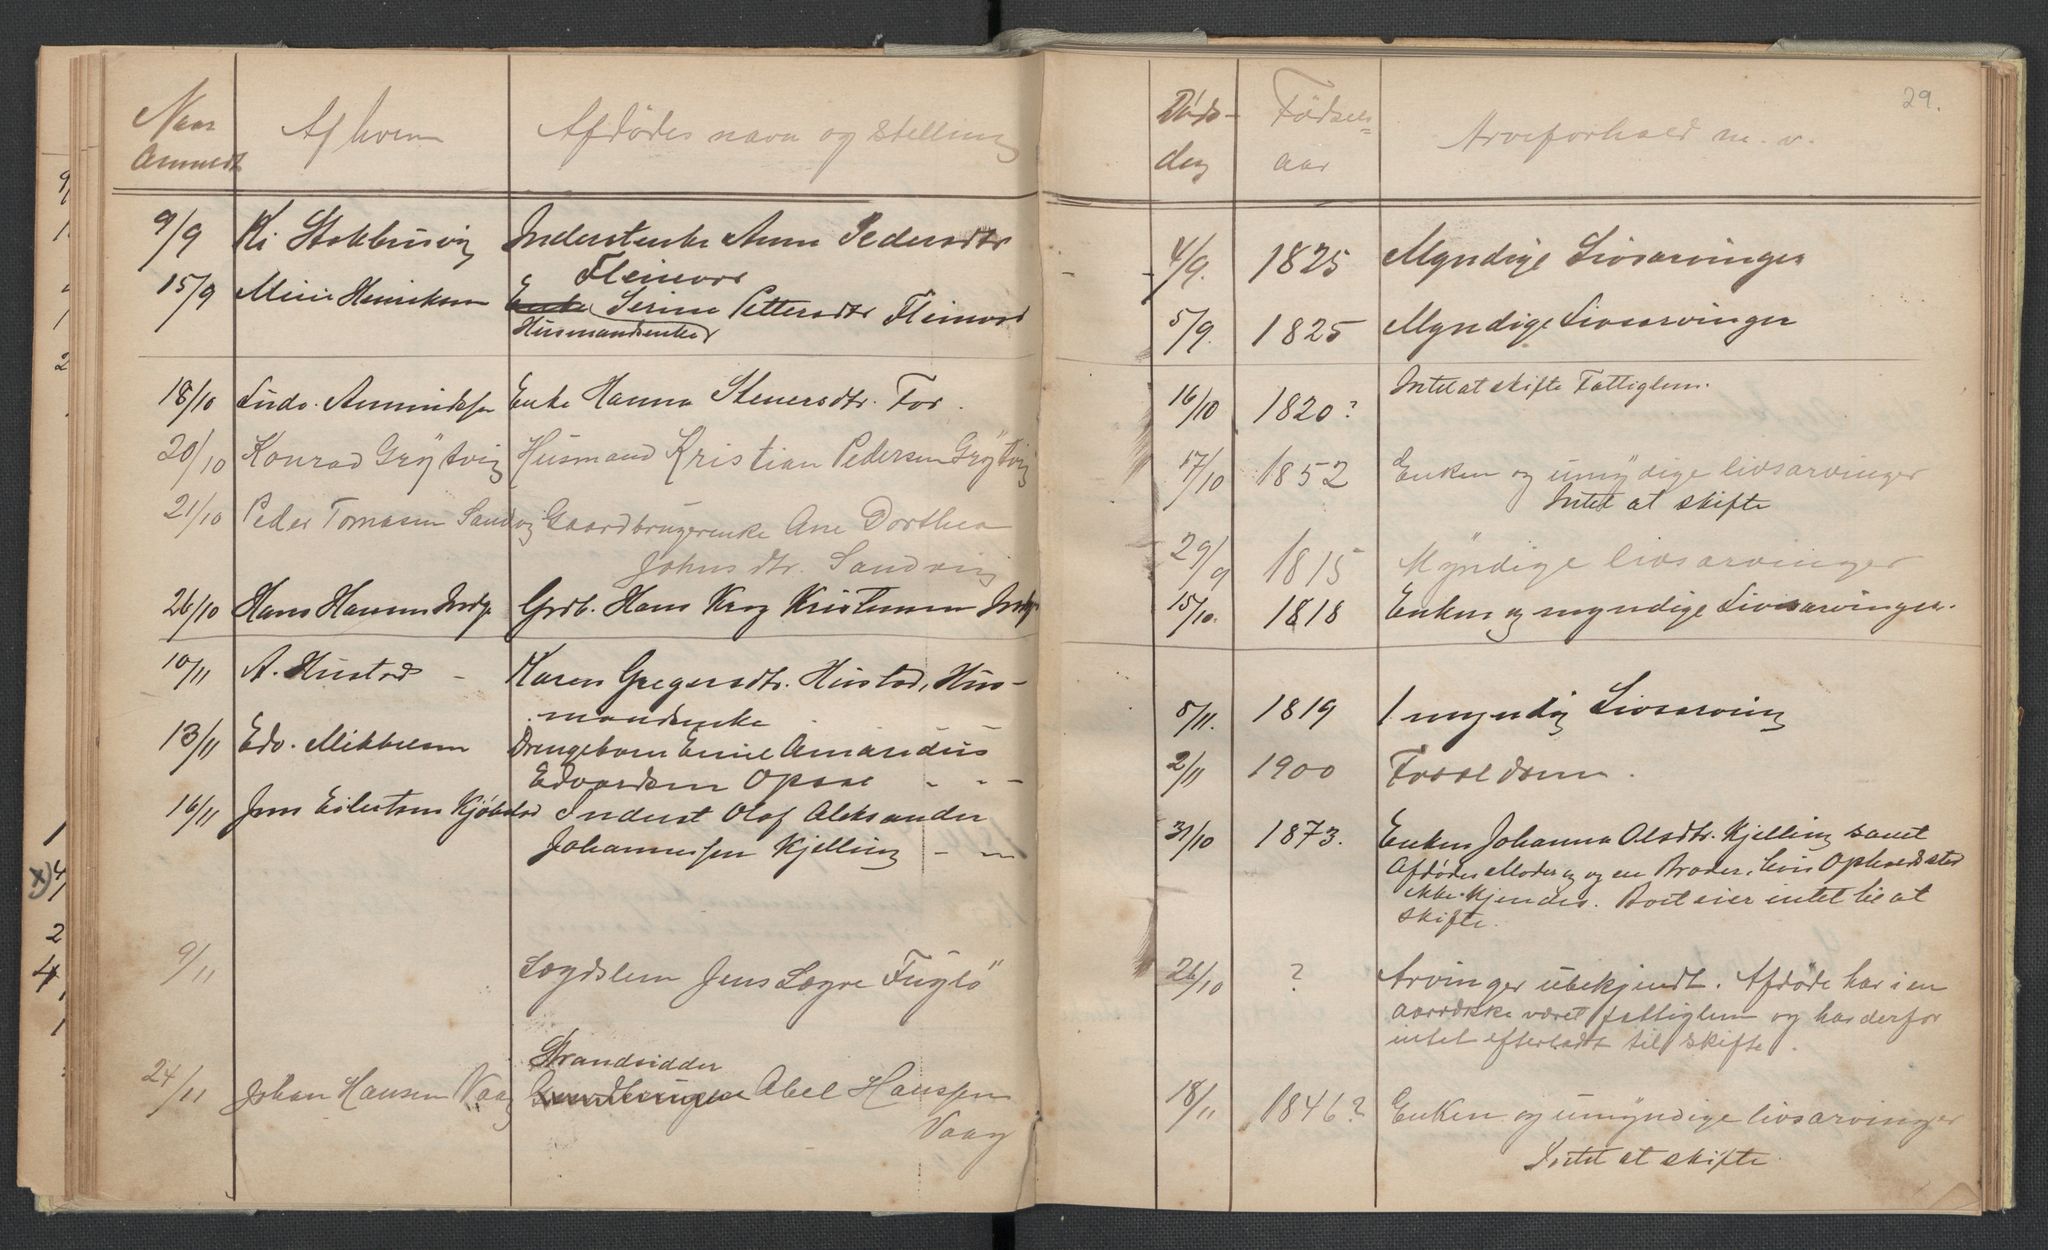 Naar Anmeldt
Af hvem
Afdödes navn og Stelling
Døds-
dag
Fødsels-
aar
Arveforhold m. v.
29.
9/9 Kr Stokkesvig Inderstenke Anne Pedersdtr
Fleinvær
4/9. 1825 Myndige Livsarvinger
15/9 Meier Henriksen Enke Serine Pettersdtr Fleinvær
Husmandsenke
5/9. 1825 Myndige Livsarvinger
18/10 Ludv. Amundsen Enke Hanna Steuersdtr. For.
16/10 1820? Intet at skifte Fattiglem.
20/10 Konrad Grÿtvig Husmand Kristian Pedersen Grÿtvig
17/10 1852 Enken og umÿdige livsarvinger
Intet at skifte
21/10 Peder Tomasen Sandvig Gaardbrugerenke Ane Dorthea
Johnsdtr. Sandvig
29/9 1815 Mÿndige livsarvinger
26/10 Hans Hansen Indy. Grdb. Hans Krog Kristensen Indy.
15/10. 1818 Enken og myndige Livsarvinger.
10/11 A. Hustad - Karen Gregersdtr. Hustad, Hus-
mandsenke
5/11. 1819 1 myndig Livsarving
13/11 Edv. Mikkelsen Drengebarn Emil Amandus
Edvardsen Opsal - - -
2/11 1900 Forældern.
16/11 Jens Eilertsen Kjöbstad Inderst Olaf Aleksander
Johannessen Kjelling - -
31/10 1873. Enken Johanna Olsdtr. Kjelling samt
Afdødes Moder og en Broder, hvis Opholdssted
ikke kjendes. Boet eier intet til at
skifte.
9/11 Lægdslem Jens Lægre Fuglö
26/10 ? Arvinger ubekjendt. Afdöde har i en
aarrække været fattiglem og har derfor
intet efterladt til skifte.
Strandsidder
24/11 Johan Hansen Vaag Gaardbruger Abel Hanssen
Vaag
18/11 1846? Enken og umÿndige livsarvinger
Intet at skifte